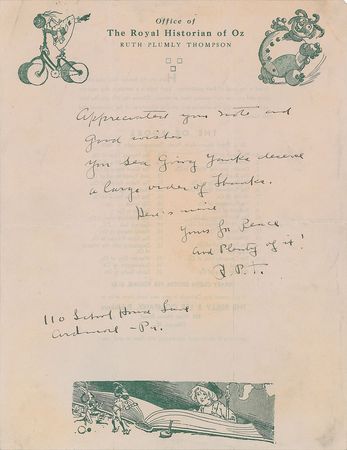 Office of
The Royal Historian of Oz
RUTH PLUMLY THOMPSON
Appreciated your note and
good wishes
You Sea Going Yanks deserve
a large order of Thanks.
Here's mine
Yours for Peace
and Plenty of it!
R.P.T.
110 School House Lane
Ardmore - Pa.